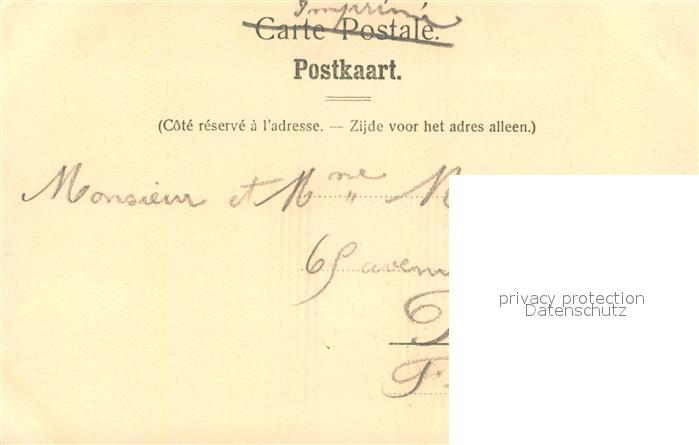 Imprimé
Carte Postale.
Postkaart.
(Côté réservé à l'adresse. — Zijde voor het adres alleen.)
Monsieur et Mme
65 aven
privacy protection
Datenschutz